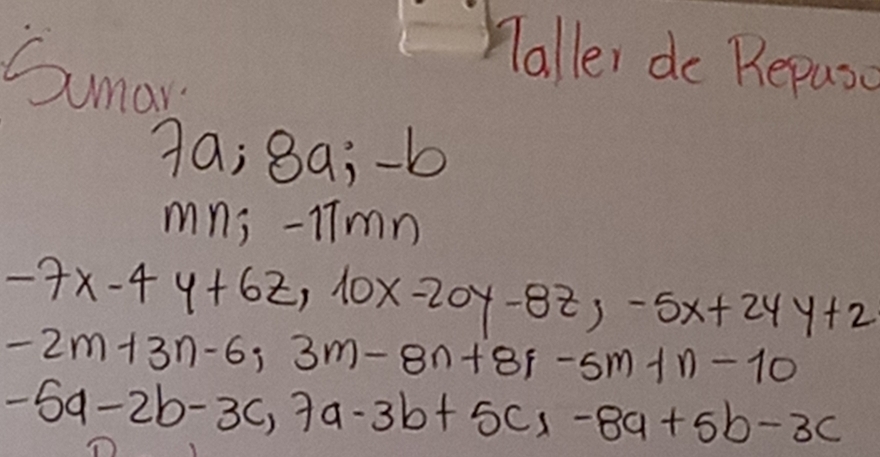 Taller de Repaso
Sumar.
7a; 8a; -b
mn; -11mn
-7x-4y+6z, 10x-20y-8z, -5x+24y+2
-2m+3n-6; 3m-8n+8; -5m+n-10
-5a-2b-3c, 7a-3b+5c, -8a+5b-3c